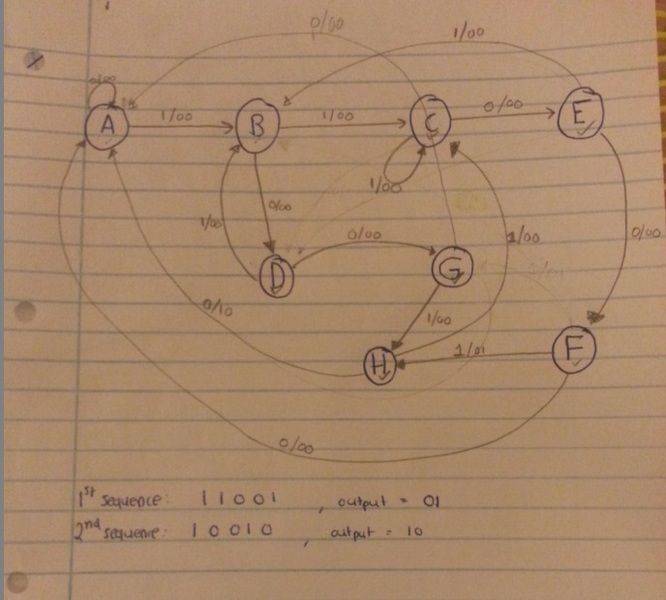 0/00
1/00
0/00
A
1/00
B
1/00
C
0/00
E
1/00
1/00
0/00
0/00
1/00
0/00
D
G
0/10
1/00
H
1/01
F
0/00
1st sequence: 11001, output = 01
2nd sequence: 10010, output = 10